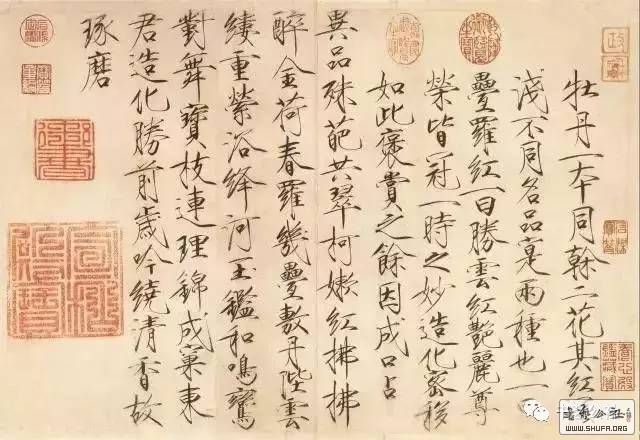 牡丹一本同榦二花其紅
淺不同名品寔兩種也一
疊羅紅一曰勝雲紅艷麗尊
榮皆冠一時之妙造化密移
如此褒賞之餘因成口占
異品殊葩共翠柯嫩紅拂拂
醉金荷春羅幾疊敷丹陛雲
縷重縈浴絳河玉鑑和鳴鸞
對舞寶枝連理錦成窠東
君造化勝前歲吟繞清香故
琢磨
WWW.SHUFA.ORG